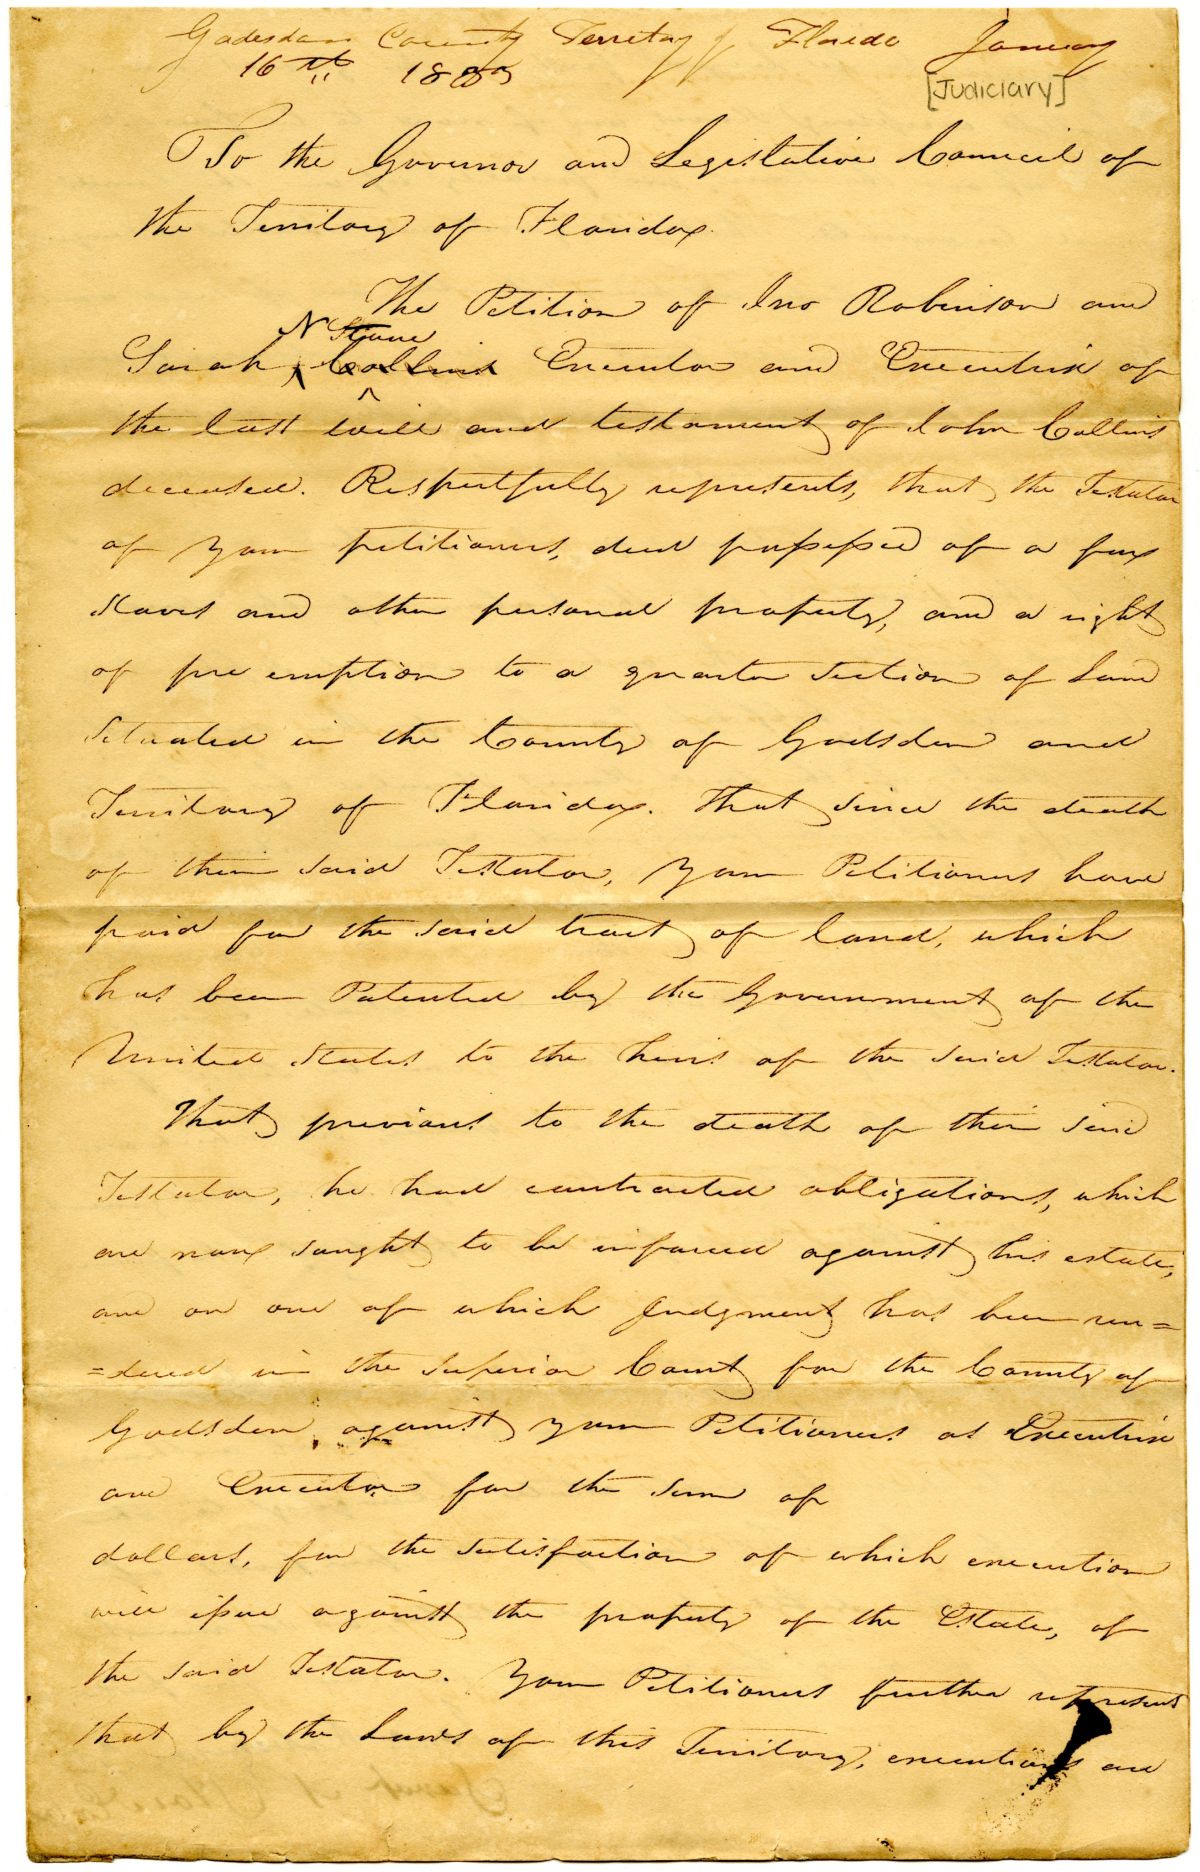 Gadesdan County Territory of Florida January
16th 18
[Judiciary]
To the Governor and Legislative Council of
the Territory of Florida.
The Petition of Jno Robinson and
N Stone
Sarah Collins Executor and Executrix of
the last will and testament of John Collins
deceased. Respectfully represents, that the Testator
of your petitioners, died possessed of a few
slaves and other personal property, and a right
of pre emption to a quarter section of Land
situated in the County of Gadsden and
Territory of Florida. That since the death
of their said Testator, your Petitioners have
paid for the said tract of land, which
has been Patented by the Government of the
United States to the heirs of the said Testator.
That previous to the death of their said
Testator, he had contracted obligations, which
are now sought to be inforced against his estate,
and on one of which Judgment has been ren=
=dered in the Superior Court for the County of
Gadsden, against your Petitioners as Executrix
and Executor for the sum of
dollars, for the satisfaction of which execution
will issue against the property of the Estate, of
the said Testator. Your Petitioners further represent
that by the Laws of this Territory, executions are